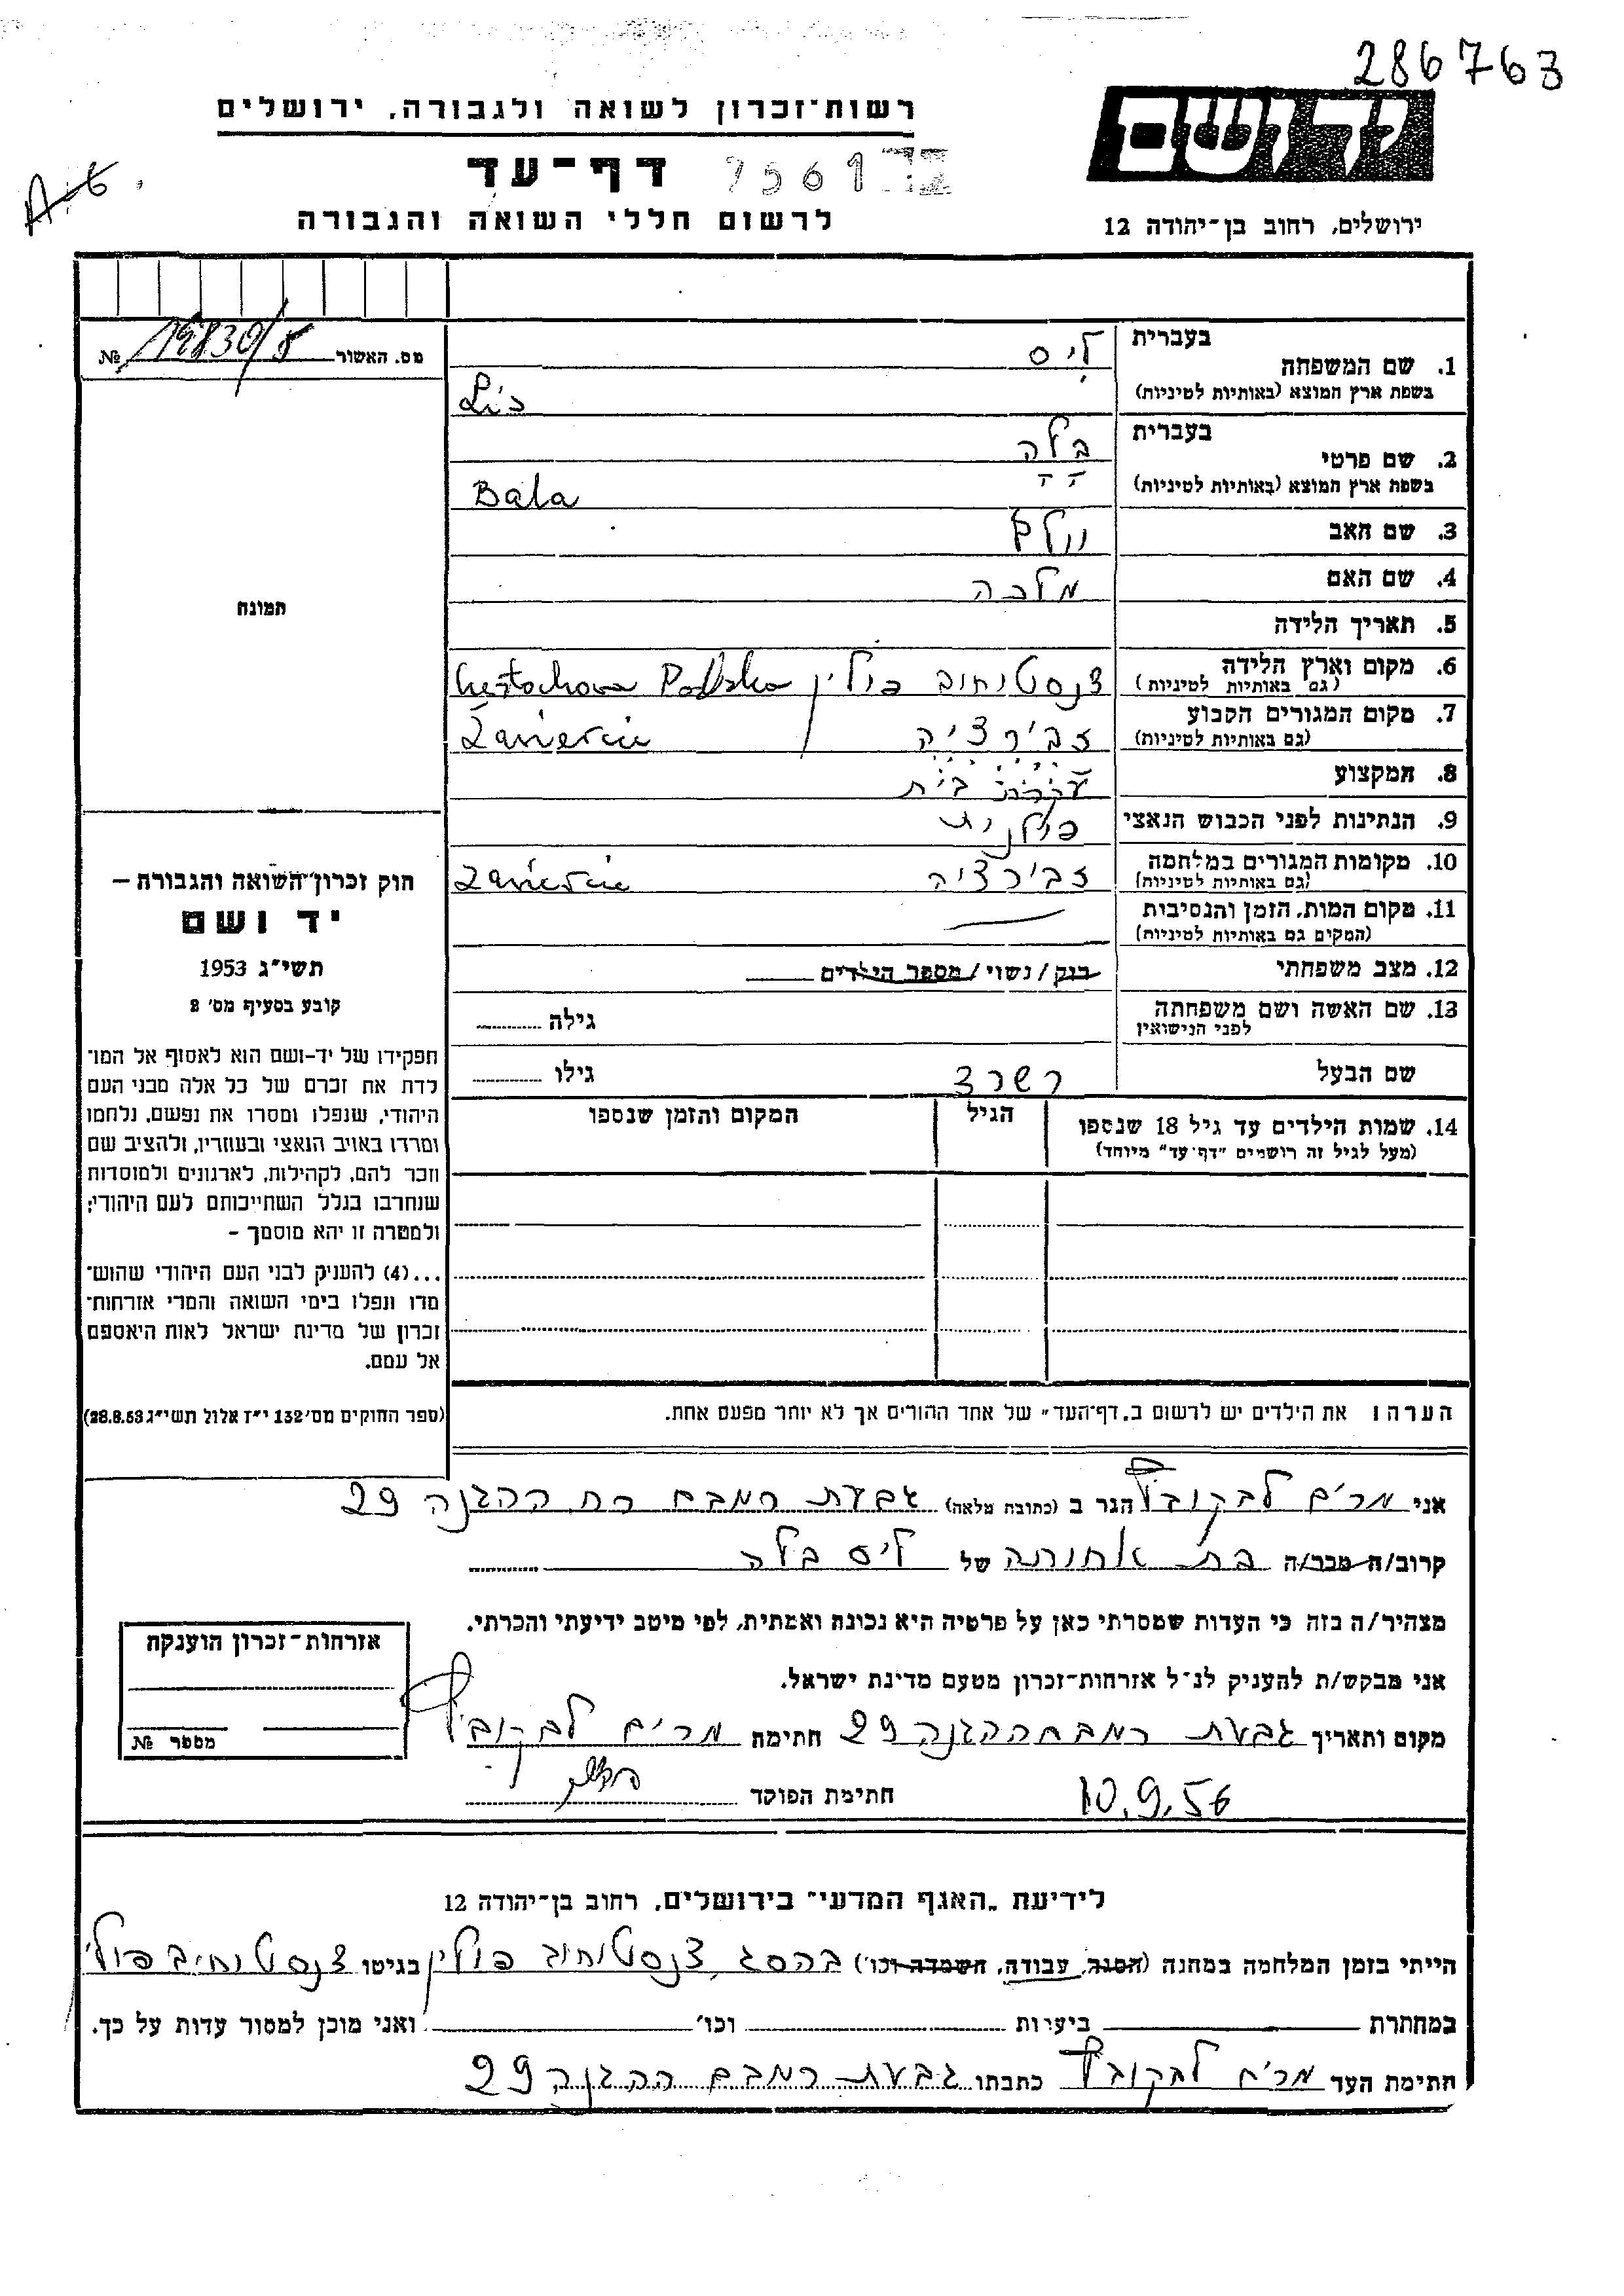 286763
רשות־זכרון לשואה ולגבורה, ירושלים
ידושם
דף־עד
לרשום חללי השואה והגבורה
ירושלים, רחוב בן־יהודה 12
מס. האשור № 19830/8
1. שם המשפחה בעברית ליס
בשפת ארץ המוצא (באותיות לטיניות) Lis
2. שם פרטי בעברית בלה
בשפת ארץ המוצא (באותיות לטיניות) Bala
3. שם האב
4. שם האם מלכה
5. תאריך הלידה
6. מקום וארץ הלידה צנסטוחוב פולין
(גם באותיות לטיניות)
7. מקום המגורים הקבוע זבירציה
(גם באותיות לטיניות)
8. המקצוע עקרת בית
9. הנתינות לפני הכבוש הנאצי פולנית
10. מקומות המגורים במלחמה זבירציה
(גם באותיות לטיניות)
11. מקום המות, הזמן והנסיבות
(המקום גם באותיות לטיניות)
12. מצב משפחתי רווק/נשוי/מספר הילדים
13. שם האשה ושם משפחתה גילה
לפני הנישואין
שם הבעל גילו
14. שמות הילדים עד גיל 18 שנספו הגיל המקום והזמן שנספו
(מעל לגיל זה רושמים "דף־עד" מיוחד)
תמונה
חוק זכרון־השואה והגבורה –
יד ושם
תשי״ג 1953
קובע בסעיף מס׳ 2
תפקידו של יד-ושם הוא לאסוף אל המו־
לדת את זכרם של כל אלה מבני העם
היהודי, שנפלו ומסרו את נפשם, נלחמו
ומרדו באויב הנאצי ובעוזריו, ולהציב שם
וזכר להם, לקהילות, לארגונים ולמוסדות
שנחרבו בגלל השתייכותם לעם היהודי;
ולמטרה זו יהא מוסמך –
...(4) להעניק לבני העם היהודי שהוש־
מדו ונפלו בימי השואה והמרי אזרחות־
זכרון של מדינת ישראל לאות היאספם
אל עמם.
(ספר החוקים מס׳ 132 י״ז אלול תשי״ג 28.8.53)
הערה: את הילדים יש לרשום ב„דף־העד" של אחד ההורים אך לא יותר מפעם אחת.
אני מרים לבקוביץ הגר ב (כתובת מלאה) גבעת רמבם רח ההגנה 29
קרוב/ה מכר/ה בת אחותה של ליס בלה
מצהיר/ה בזה כי העדות שמסרתי כאן על פרטיה היא נכונה ואמתית, לפי מיטב ידיעתי והכרתי.
אני מבקש/ת להעניק לנ״ל אזרחות־זכרון מטעם מדינת ישראל.
מקום ותאריך גבעת רמבם ההגנה 29 חתימת מרים לבקוביץ
10.9.56 חתימת הפוקד
אזרחות־זכרון הוענקה
מספר №
לידיעת „האגף המדעי" בירושלים, רחוב בן־יהודה 12
הייתי בזמן המלחמה במחנה (הסגר, עבודה, השמדה וכו׳) בהסג צנסטוחוב פולין בגיטו צנסטוחוב פולי
במחתרת ביערות וכו׳ ואני מוכן למסור עדות על כך.
חתימת העד מרים לבקוביץ כתבתו גבעת רמבם ההגנה 29